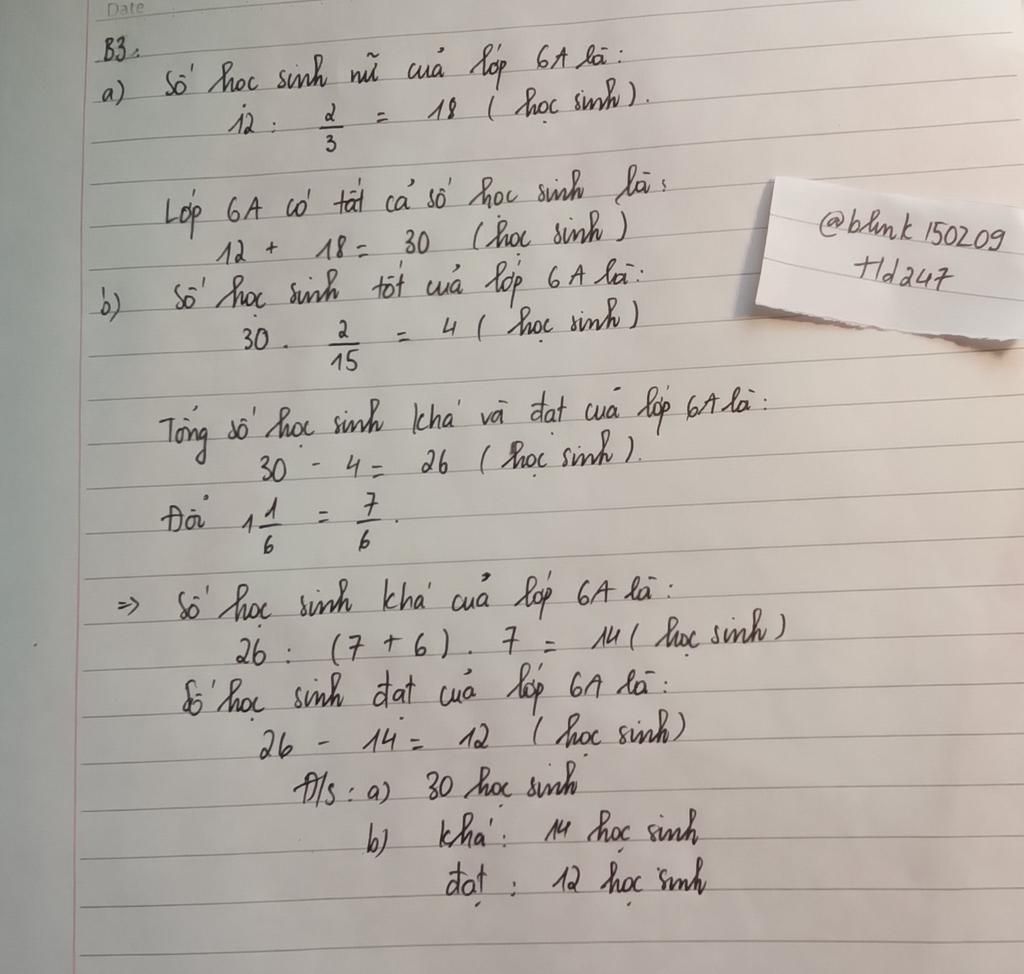 Date
B3:
a) Số học sinh nữ của lớp 6A là:
12 : 2/3 = 18 ( học sinh).
Lớp 6A có tất cả số học sinh là:
12 + 18 = 30 (học sinh)
b) Số học sinh tốt của lớp 6A là:
30 . 2/15 = 4 ( học sinh)
Tổng số học sinh khá và đạt của lớp 6A là:
30 - 4 = 26 ( học sinh).
Đổi 1 1/6 = 7/6.
=> Số học sinh khá của lớp 6A là:
26 : (7 + 6) . 7 = 14 ( học sinh)
Số học sinh đạt của lớp 6A là:
26 - 14 = 12 ( học sinh)
Đ/s: a) 30 học sinh
b) khá: 14 học sinh
đạt : 12 học sinh
@blink150209
tld247